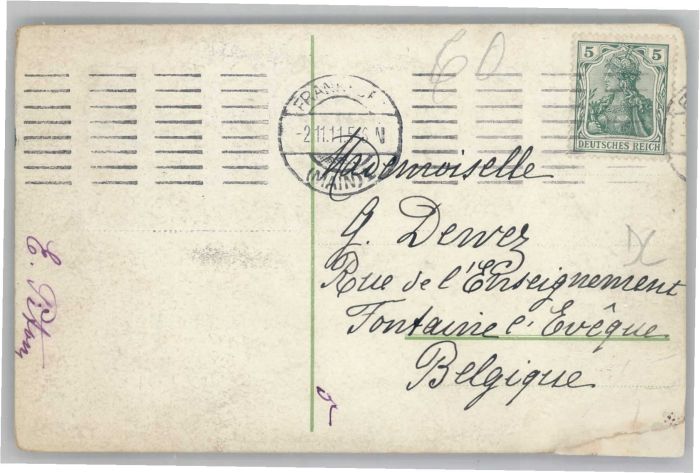 60
5 5
DEUTSCHES REICH
FRANKFURT
-2.11.11.5-6 N
(MAIN)
Mademoiselle
G. Dewez
Rue de l'Enseignement
Fontaine l'Evêque
Belgique